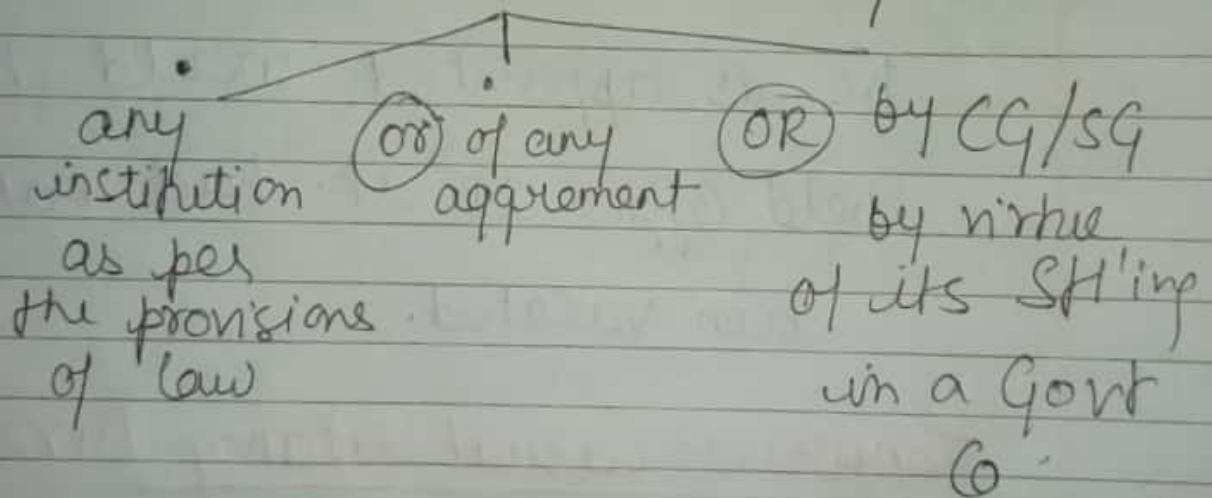 any
institution
as per
the provisions
of law
or of any
aggrement
OR by CG/SG
by virtue
of its SH'ing
in a Govt
Co.